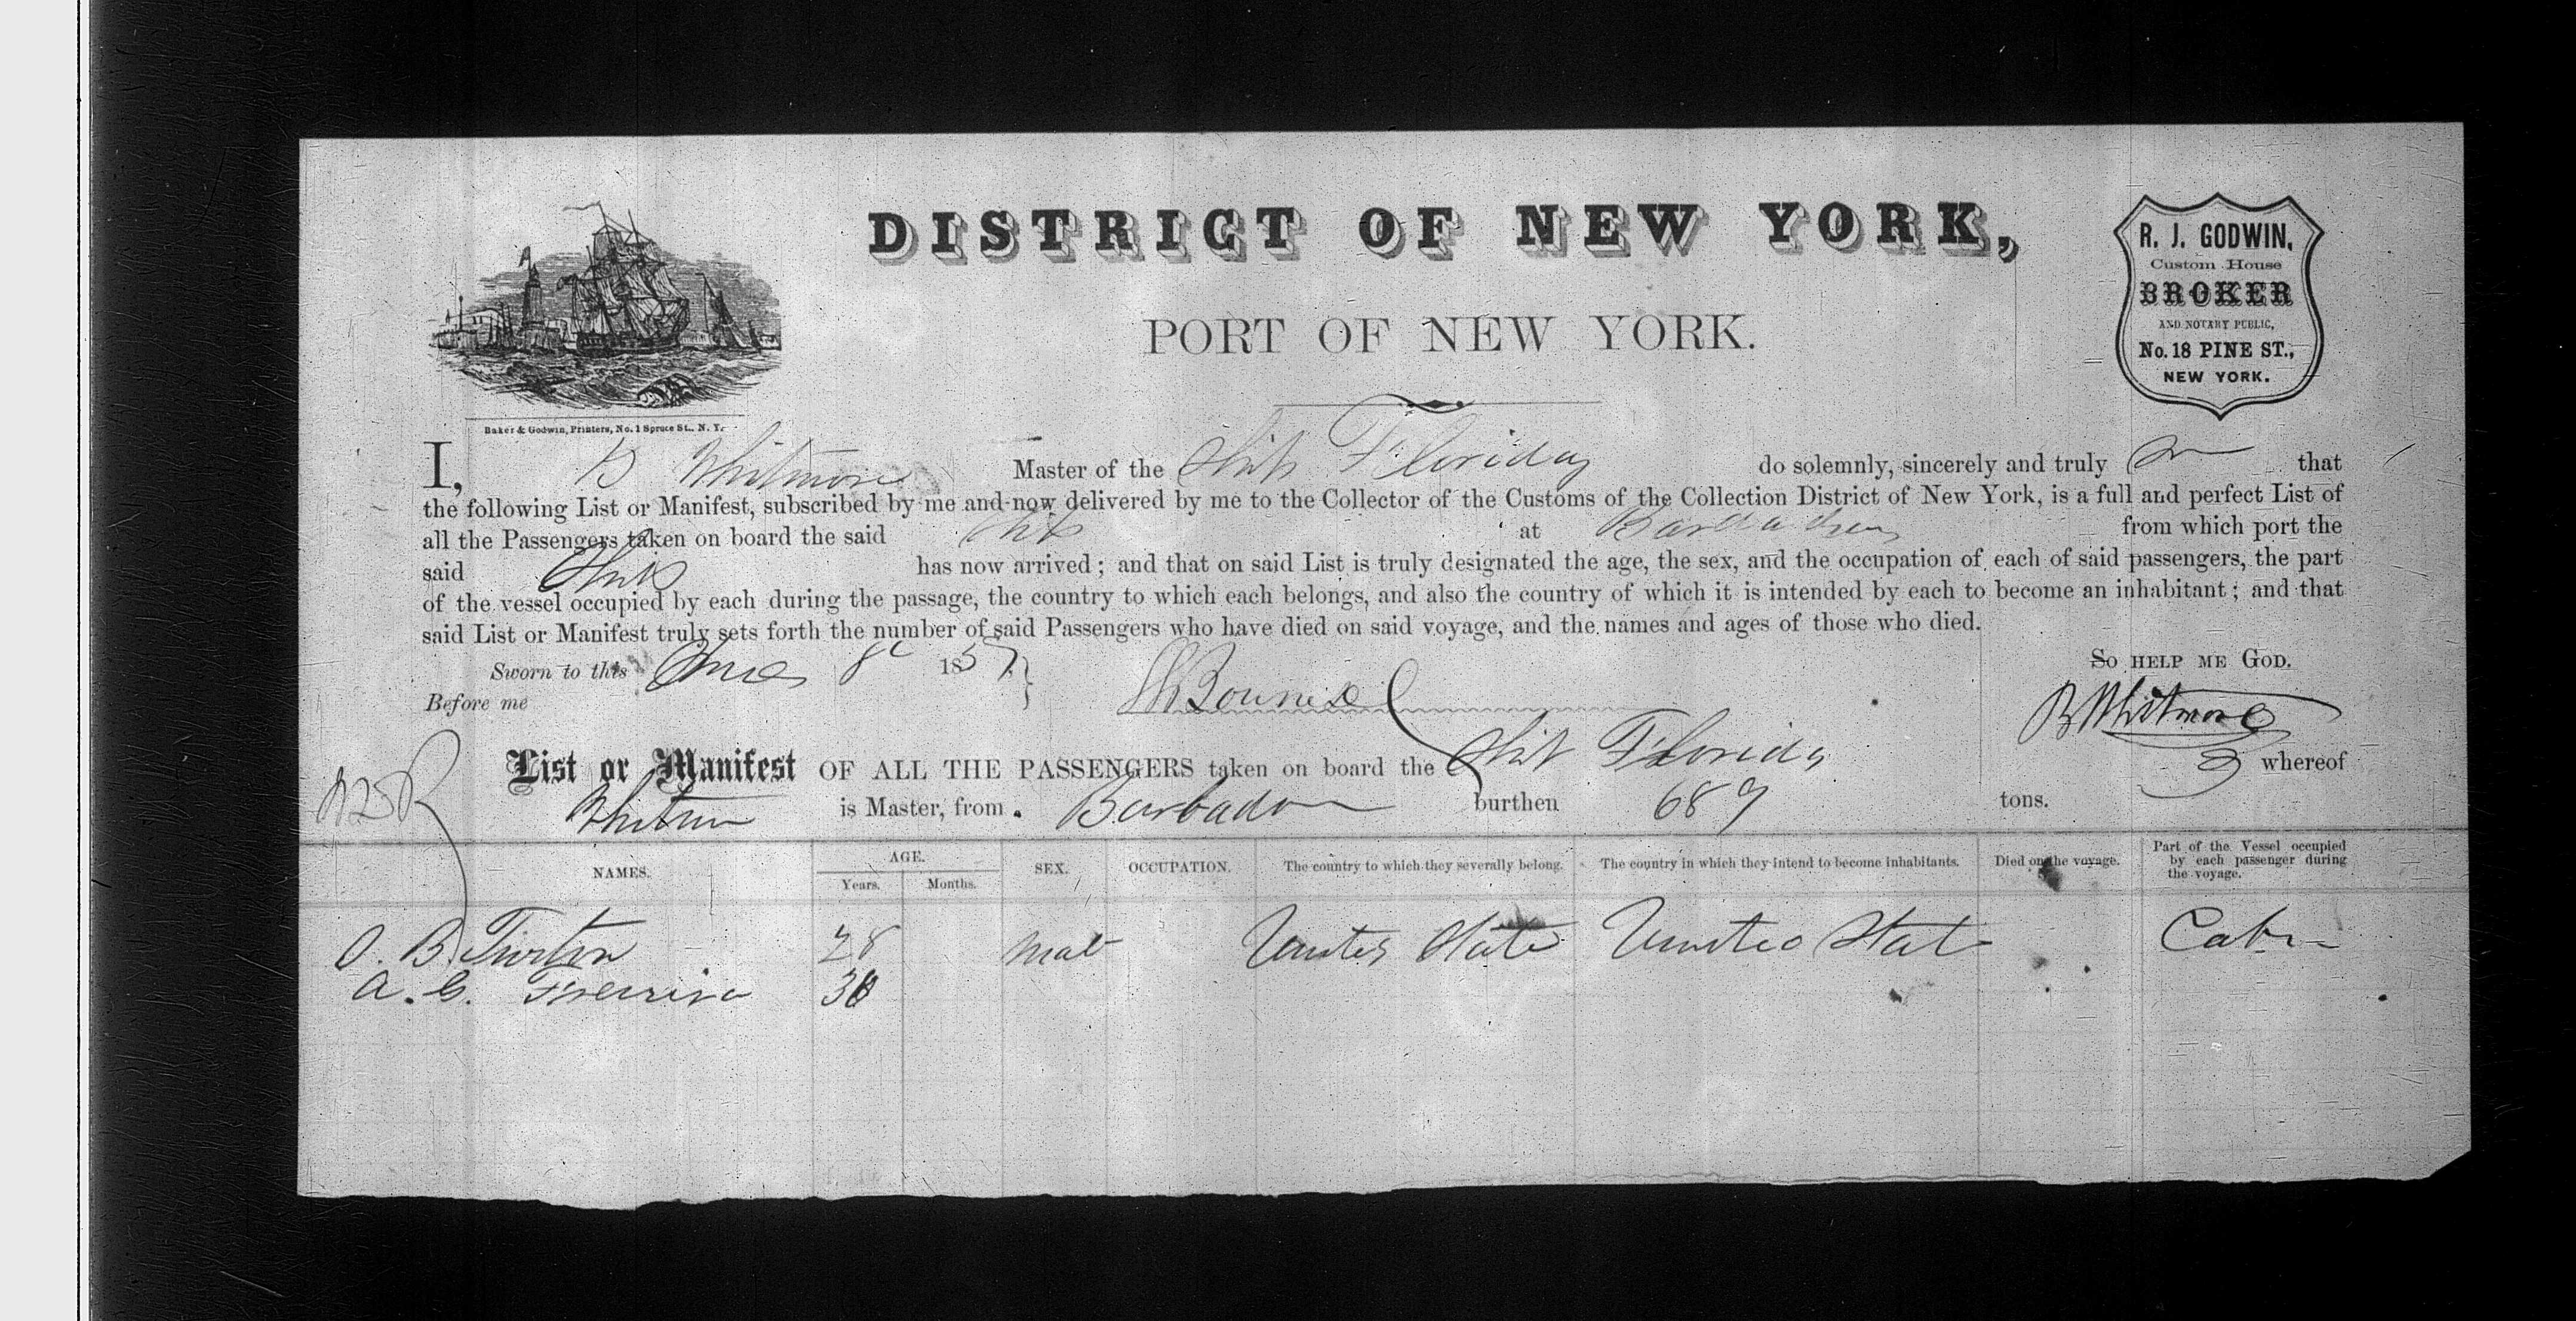 DISTRICT OF NEW YORK,
PORT OF NEW YORK.
R. J. GODWIN,
Custom House
BROKER
AND NOTARY PUBLIC,
No. 18 PINE ST.,
NEW YORK.
Baker & Godwin, Printers, No. 1 Spruce St., N. Y.
I, B Whitmore Master of the Ship Florida do solemnly, sincerely and truly that
the following List or Manifest, subscribed by me and now delivered by me to the Collector of the Customs of the Collection District of New York, is a full and perfect List of
all the Passengers taken on board the said Ship at Barbadoes from which port the
said Ship has now arrived; and that on said List is truly designated the age, the sex, and the occupation of each of said passengers, the part
of the vessel occupied by each during the passage, the country to which each belongs, and also the country of which it is intended by each to become an inhabitant; and that
said List or Manifest truly sets forth the number of said Passengers who have died on said voyage, and the names and ages of those who died.
Sworn to this June 8 1857 So HELP ME GOD.
Before me B Whitmore
List or Manifest OF ALL THE PASSENGERS taken on board the Ship Florida whereof
Whitmore is Master, from Barbados burthen 689 tons.
NAMES. AGE. Years. Months. SEX. OCCUPATION. The country to which they severally belong. The country in which they intend to become inhabitants. Died on the voyage. Part of the Vessel occupied by each passenger during the voyage.
O. B. 28 Male United State United State Cabin
A. 30